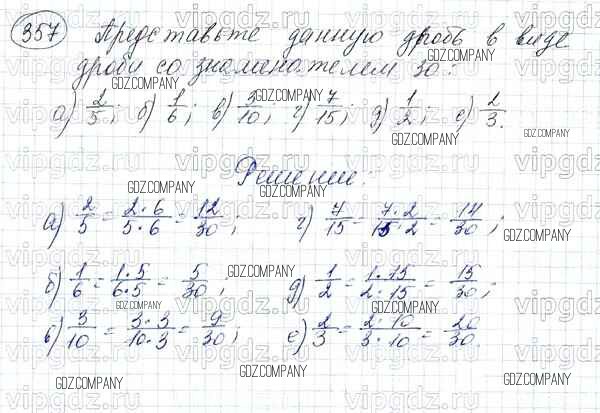 357 Представьте данную дробь в виде
дроби со знаменателем 30:
а) 2/5; б) 1/6; в) 3/10; г) 7/15; д) 1/2; е) 2/3.
Решение:
а) 2/5 = 2·6/5·6 = 12/30; г) 7/15 = 7·2/15·2 = 14/30;
б) 1/6 = 1·5/6·5 = 5/30; д) 1/2 = 1·15/2·15 = 15/30;
в) 3/10 = 3·3/10·3 = 9/30; е) 2/3 = 2·10/3·10 = 20/30.
GDZ.COMPANY
vipgdz.ru